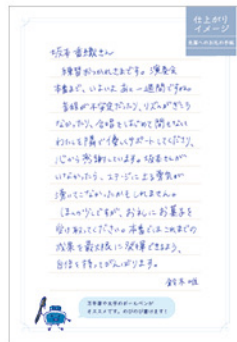 仕上がり
イメージ
先輩へのお礼の手紙
坂本 香織さん
練習おつかれさまです。演奏会
本番まで、いよいよあと一週間ですね。
音程が不安定だったり、リズムがぎこち
なかったり、合唱をはじめて間もない
わたしを隣で優しくサポートしてくださり、
心から感謝しています。坂本さんが
いなかったら、ステージに立つ勇気が
湧いてこなかったかもしれません。
ほんの少しですが、お礼にお菓子を
受け取ってください。本番ではこれまでの
成果を最大限に発揮できるよう、
自信を持ってがんばります。
鈴木 唯
万年筆や太字のボールペンが
オススメです。のびのび書けます!